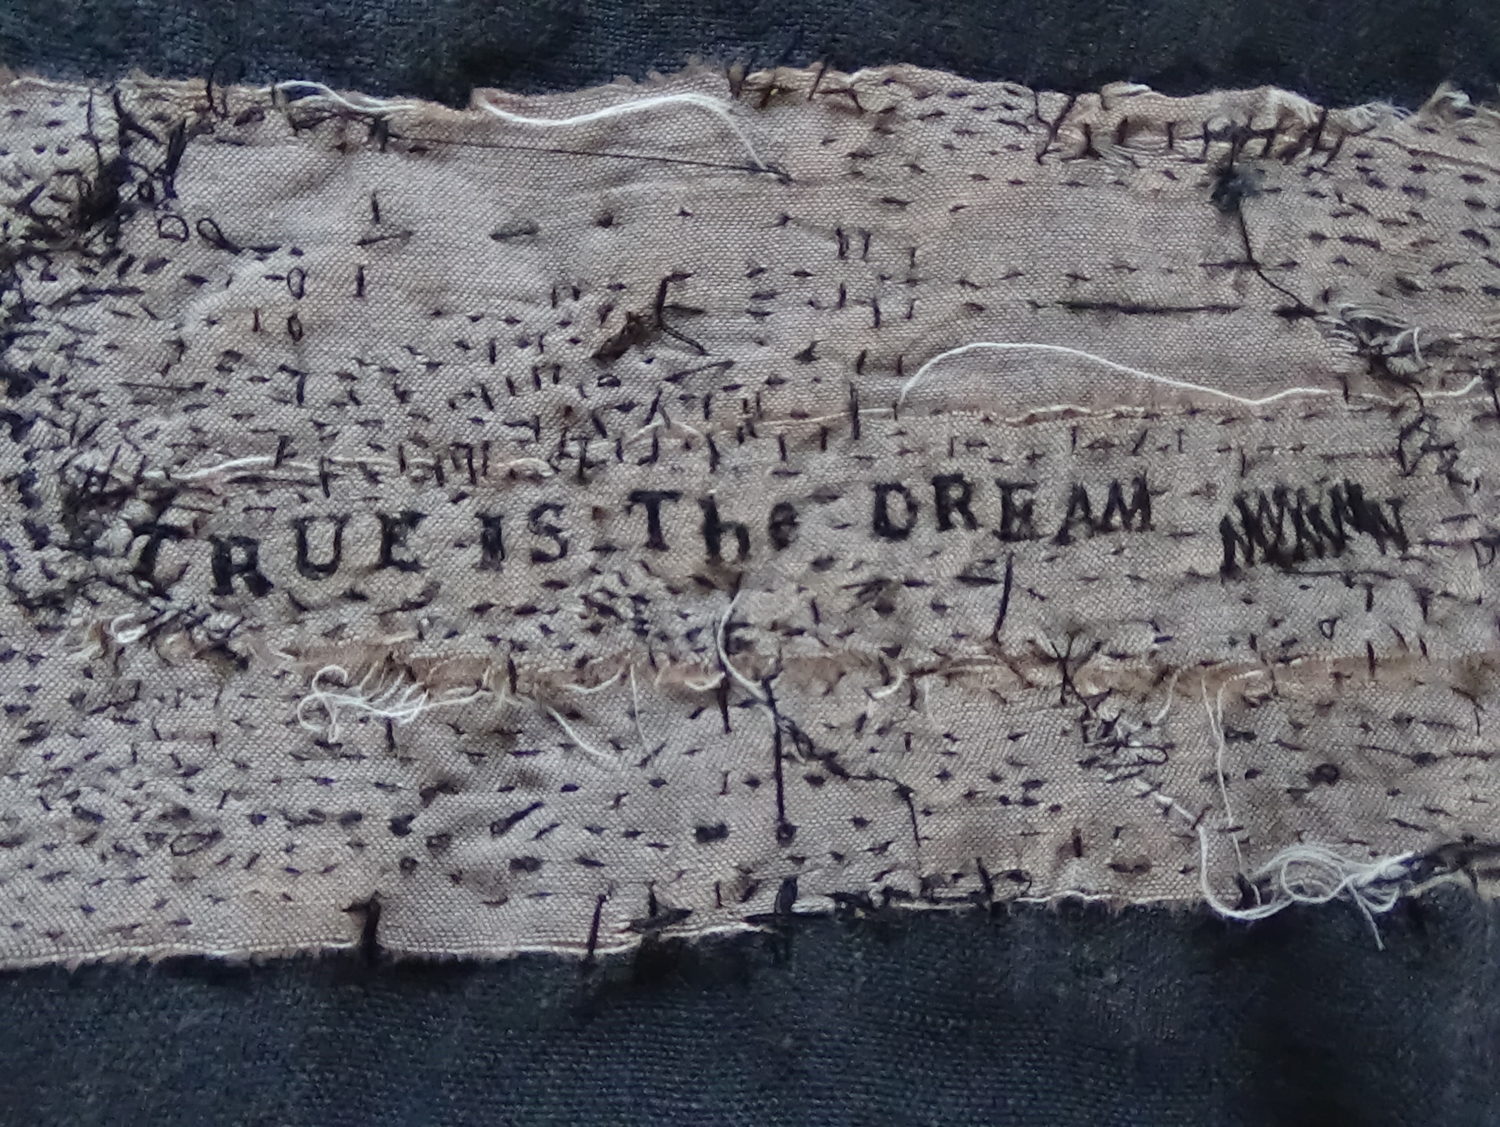 TRUE IS The DREAM